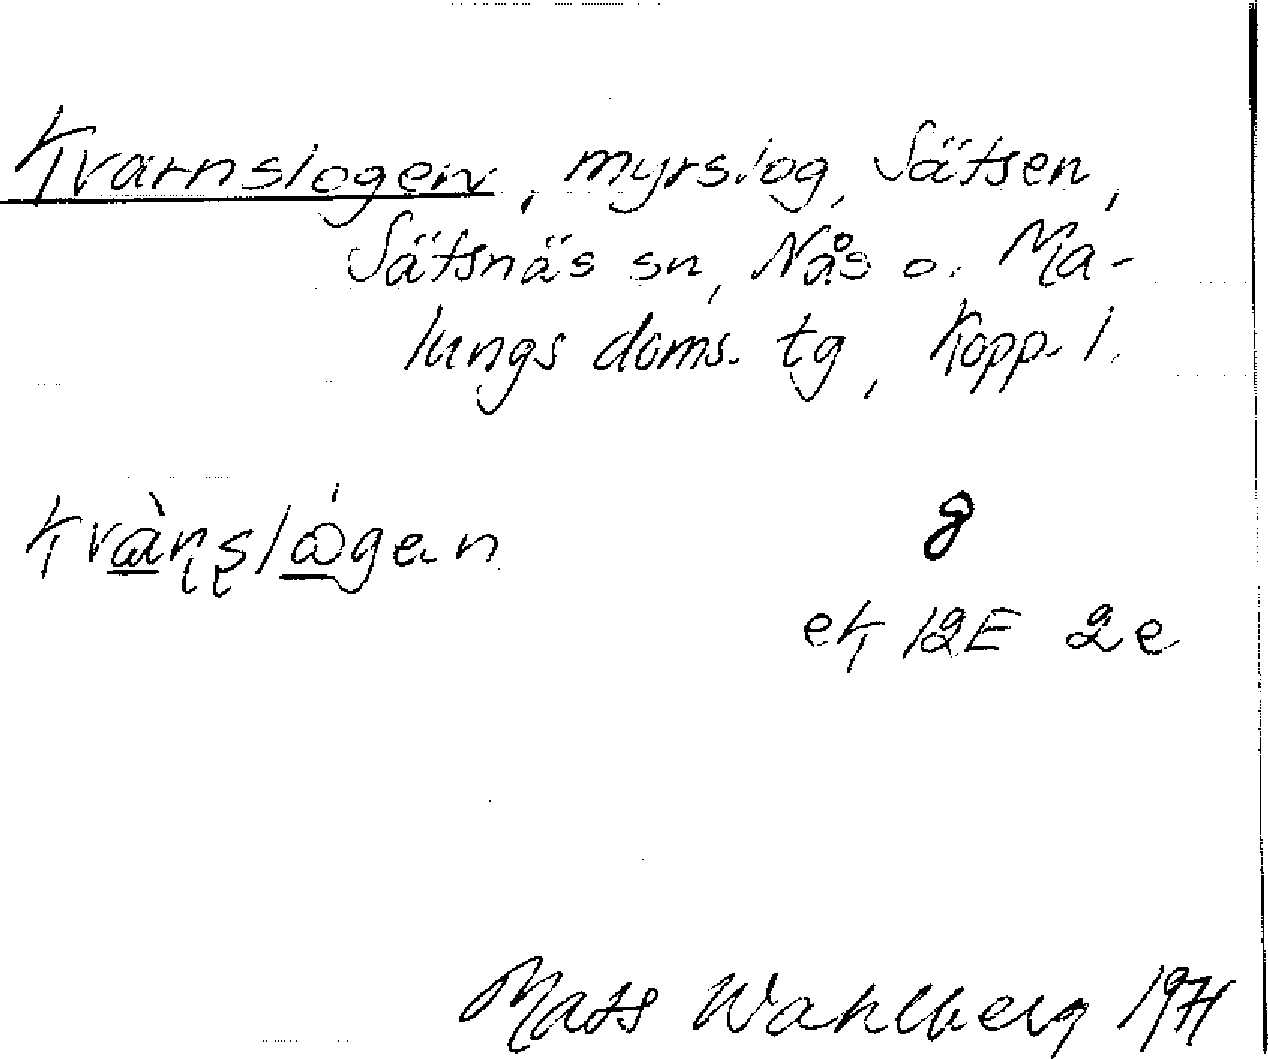 Kvarnslogen, myrslog, Sätsen,
Sätsnäs sn, Nås o. Ma-
lungs doms. tg, Kopp. l.
8
ek 12E 2e
Mats Wahlberg 1971